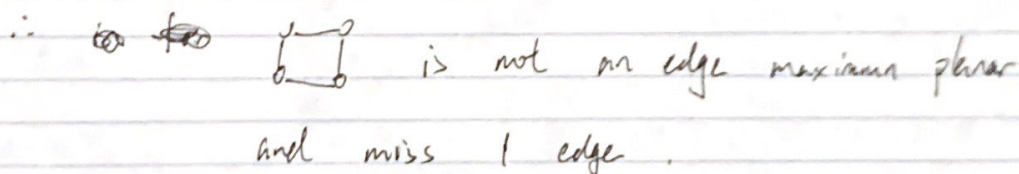 ∴ is not an edge maximum planar
and miss 1 edge.